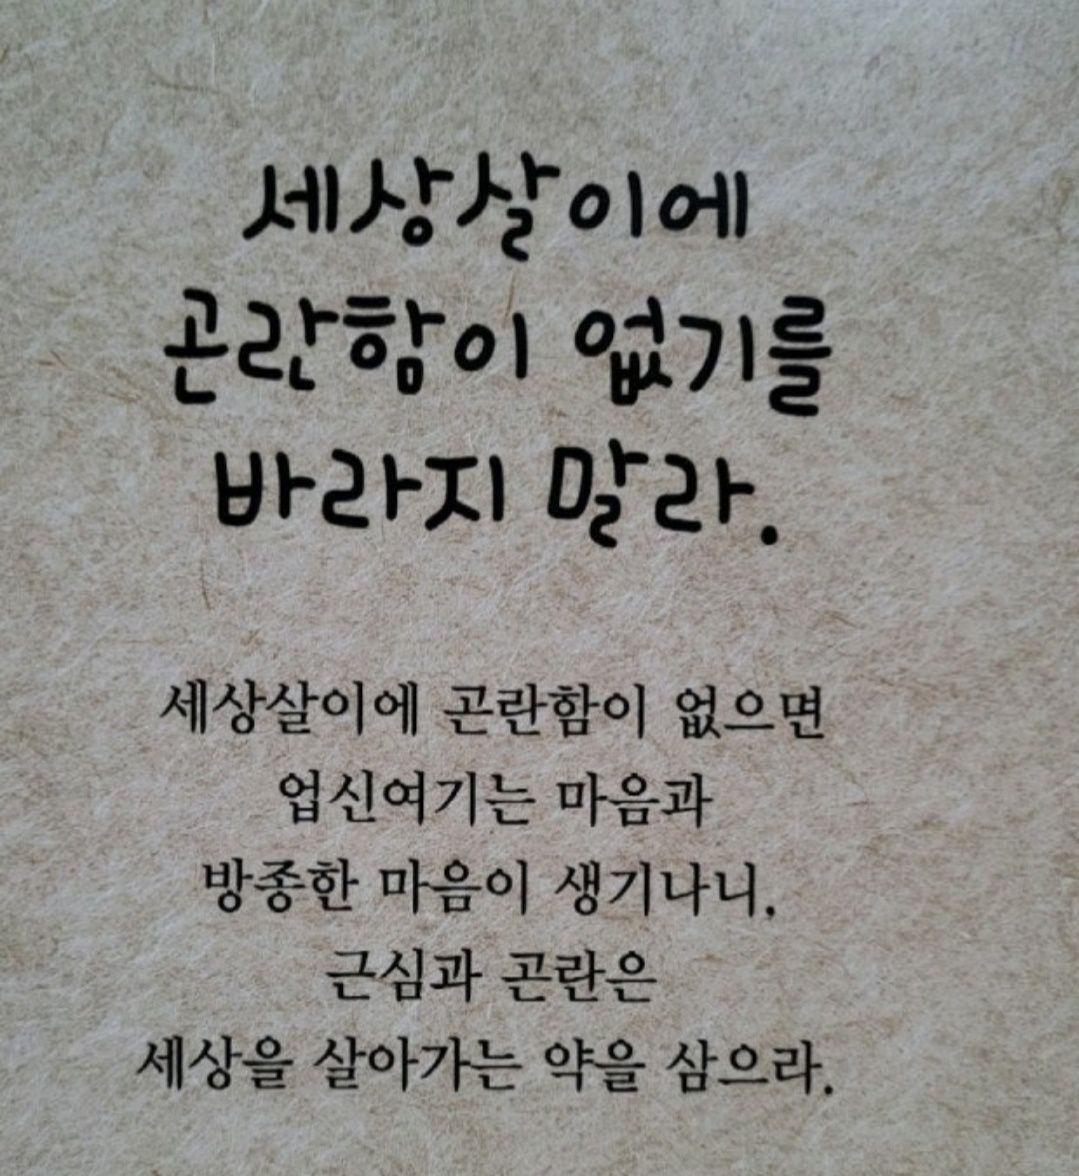 세상살이에
곤란함이 없기를
바라지 말라.
세상살이에 곤란함이 없으면
업신여기는 마음과
방종한 마음이 생기나니.
근심과 곤란은
세상을 살아가는 약을 삼으라.